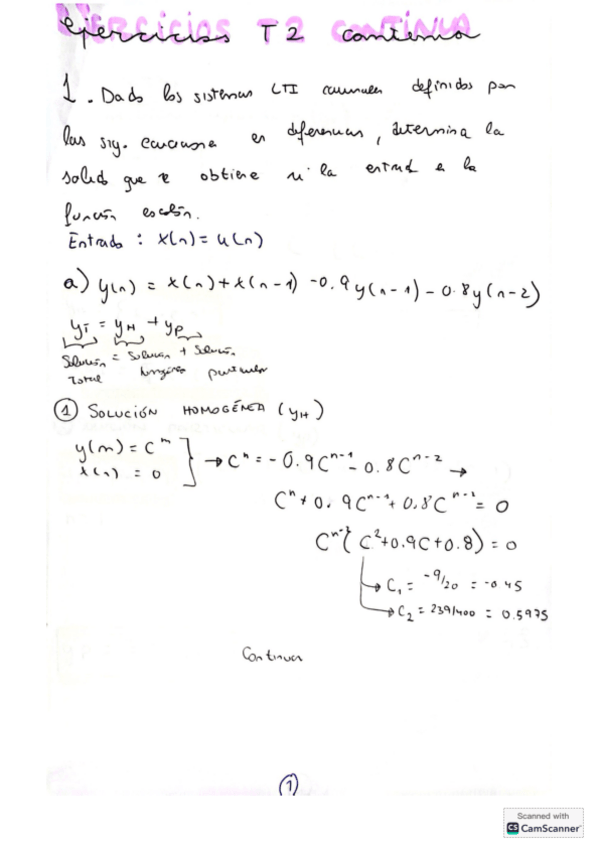 Ejercicios T2 continua
1. Dado los sistemas LTI causales definidos por
las sig. ecuaciones en diferencias, determina la
salida que se obtiene si la entrada es la
función escalón.
Entrada : x(n) = u(n)
a) y(n) = x(n) + x(n-1) - 0.9y(n-1) - 0.8y(n-2)
yT = yH + yP
Solución = Solución + Solución
Total particular
① SOLUCIÓN HOMOGÉNEA (yH)
y(n) = C^n
x(n) = 0 → C^n = -0.9C^n-1 - 0.8C^n-2 →
C^n + 0.9C^n-1 + 0.8C^n-2 = 0
C^n-2 (C^2 + 0.9C + 0.8) = 0
→ C1 = -9/20 = -0.45
→ C2 = 239/400 = 0.5975
Continua
①
Scanned with
CS CamScanner